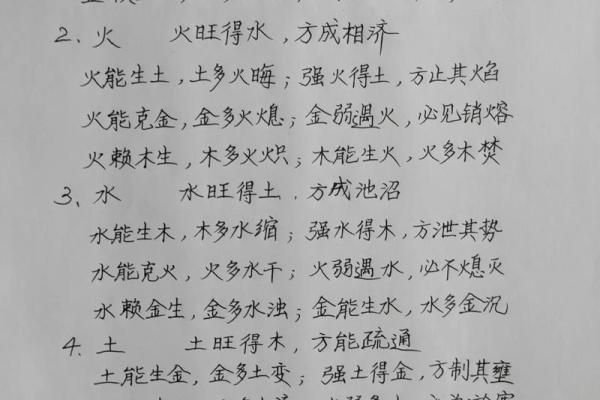 2、火 火旺得水，方成相济
火能生土，土多火晦；强火得土，方止其焰
火能克金，金多火熄；金弱遇火，必见销熔
火赖木生，木多火炽；木能生火，火多木焚
3、水 水旺得土．方成池沼
水能生木，木多水缩；强水得木，方泄其势
水能克火，火多水干；火弱遇水，必不熄灭
水赖金生，金多水浊；金能生水，水多金沉
4、土 土旺得木，方能疏通
土能生金，金多土变；强土得金，方制其壅